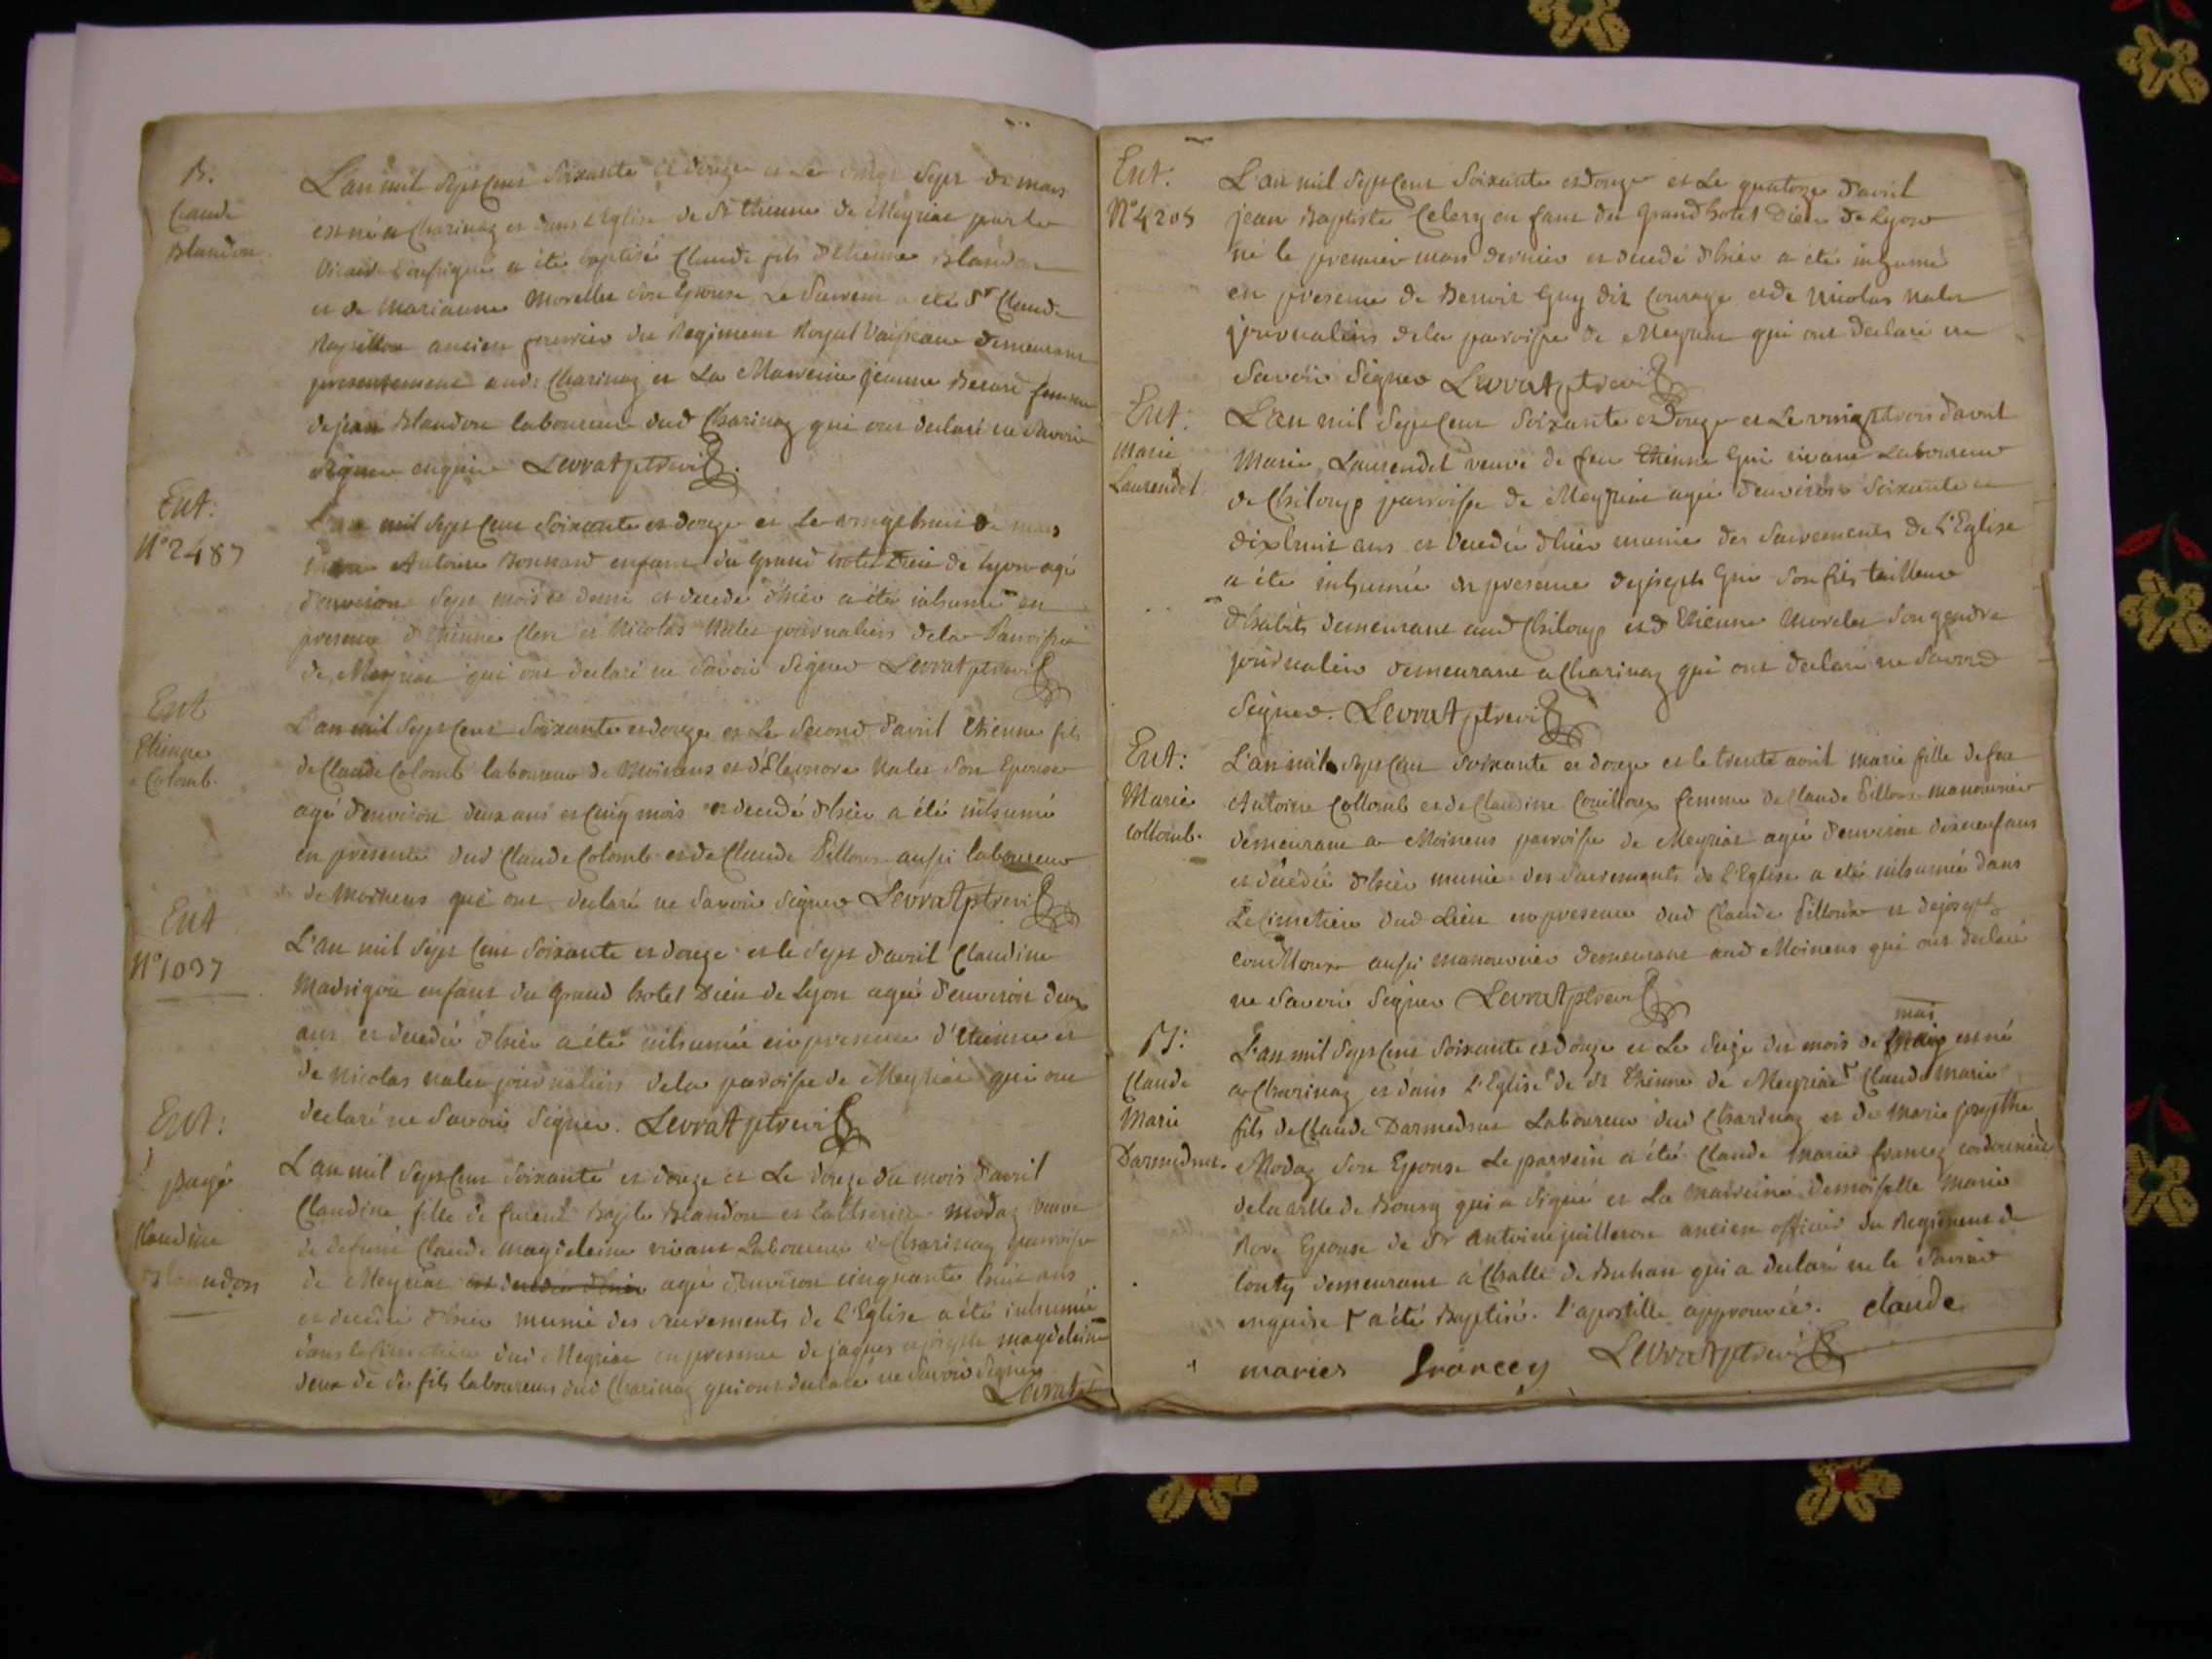 B.
Claude
Blandon.
L'an mil sept cent soixante et douze et le vingt sept de mars
est né a Charinaz et dans l'Eglise de St Etienne de Meyriat par le
vicaire soussigné a été baptisé Claude fils d'Etienne Blandon
et de Marianne Morellet son Epouse, Le Parrein a été Sr Claude
ancien fourrier du Regiment Royal Vaisseau demeurant
presentement aud: Charinaz et La Marreine jeanne femme
de jean Blandon laboureur dud Charinaz qui ont declaré ne savoir
signer enquis Levrat ptre vic
Ent:
N° 2487
L'an mil sept cent soixante et douze et le vingt huit de mars
Antoine Bonnard enfant du grand hotel Dieu de Lyon agé
d'environ sept mois et demi et decedé d'hier a été inhumé en
presence d'Etienne Clerc et Nicolas Nalet journaliers de la Parroisse
de Meyriat qui ont declaré ne savoir signer Levrat ptre vic
Ent
Etienne
Colomb.
L'an mil sept cent soixante et douze et Le second d'avril Etienne fils
de Claude Colomb laboureur de Moinens et d'Eleonore Nalet son Epouse
agé d'environ deux ans et cinq mois et decedé d'hier a été inhumé
en presence dud Claude Colomb et de Claude Pilloux aussi laboureur
de Moinens qui ont declaré ne savoir signer Levrat ptre vic
Ent
N° 1037
L'an mil sept cent soixante et douze et le sept d'avril Claudine
Madrigon enfant du grand hotel Dieu de Lyon agée d'environ deux
ans et decedée d'hier a été inhumée en presence d'Etienne et
de Nicolas nalet journaliers de la parroisse de Meyriat qui ont
declaré ne savoir signer. Levrat ptre vic
Ent:
payé
Claudine
Blandon
L'an mil sept cent soixante et douze et Le douze du mois d'avril
Claudine fille de Blandon et Catherine Modaz veuve
de defunt Claude Magdeleine vivant Laboureur de Charinaz parroisse
de Meyriat est decedée d'hier agée d'environ cinquante huit ans
et decedée d'hier munie des sacrements de L'Eglise a été inhumée
dans le Cimetiere dud Meyriat en presence de jaques et joseph magdeleine
deux de ses fils laboureurs dud Charinaz qui ont declaré ne savoir signer
Levrat pt
Ent:
N° 4205
L'an mil sept cent soixante et douze et Le quatorze d'avril
jean Baptiste Celery enfant du grand hotel Dieu de Lyon
né le premier mars dernier et decedé d'hier a été inhumé
en presence de Benoit Guy dit Courage et de Nicolas Nalet
journaliers de la parroisse de Meyriat qui ont declaré ne
savoir signer Levrat ptre vic
Ent:
Marie
Laurendet
L'an mil sept cent soixante et Douze et Le vingt trois d'avril
Marie Laurendet veuve de feu Etienne Gui vivant Laboureur
de Chiloup parroisse de Meyriat agée d'environ soixante et
dix huit ans et decedée d'hier munie des sacrements de L'Eglise
a été inhumée en presence de joseph Gui son fils tailleur
d'habits demeurant aud Chiloup et d'Etienne Morelet son gendre
journalier demeurant a Charinaz qui ont declaré ne savoir
signer. Levrat ptre vic
Ent:
Marie
collomb.
L'an mil sept cent soixante et douze et le trente avril marie fille de feu
Antoine Collomb et de Claudine Couilloux femme de Claude Pilloux manouvrier
demeurant a Moinens parroisse de Meyriat agée d'environ dixneuf ans
et decedée d'hier munie des sacrements de l'Eglise a été inhumée dans
Le cimetiere dud Lieu en presence dud Claude Pilloux et de joseph
couilloux aussi manouvrier demeurant aud Moinens qui ont declaré
ne savoir signer Levrat ptre vic
B:
Claude
Marie
Darmednat.
mai
L'an mil sept cent soixante et douze et Le seize du mois de maig est né
a Charinaz et dans L'Eglise de St Etienne de Meyriat Claude Marie
fils de Claude Darmednat Laboureur dud Charinaz et de Marie josephte
Modaz son Epouse Le parrein a été Claude Marie francey cordonnier
de la ville de Bourg qui a signé et La marreine Demoiselle Marie
Epouse de Sr Antoine ancien officier du Regiment de
Conty demeurant a Challe de Buhan qui a declaré ne le savoir
enquise a été Baptisé. l'apostille approuvée. claude
maries francey Levrat ptre vic